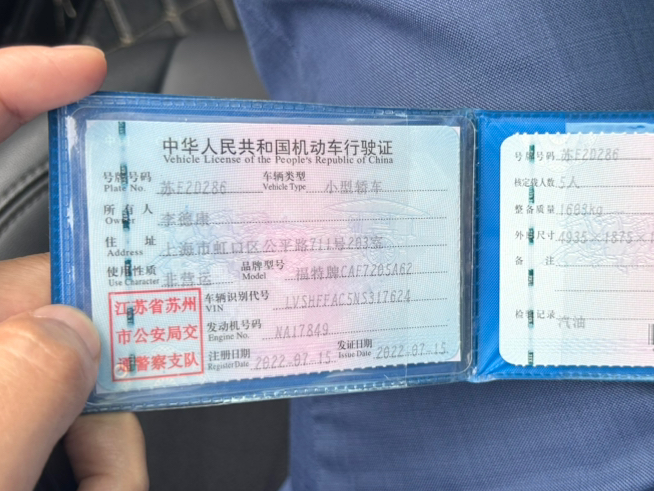 中华人民共和国机动车行驶证
Vehicle License of the People's Republic of China
号牌号码 Plate No. 苏E2D286 车辆类型 Vehicle Type 小型轿车
所有人 Owner 李德康
住址 Address 上海市虹口区公平路711号203室
使用性质 Use Character 非营运 品牌型号 Model 福特牌CAF7205A62
车辆识别代号 VIN LVSHFFAC5NS317624
发动机号码 Engine No. NA17849
注册日期 Register Date 2022-07-15 发证日期 Issue Date 2022-07-15
江苏省苏州
市公安局交
通警察支队
号牌号码 苏E2D286
核定载人数 5人
整备质量 1683kg
外廓尺寸 4935×1875×1
备注
检验记录
汽油